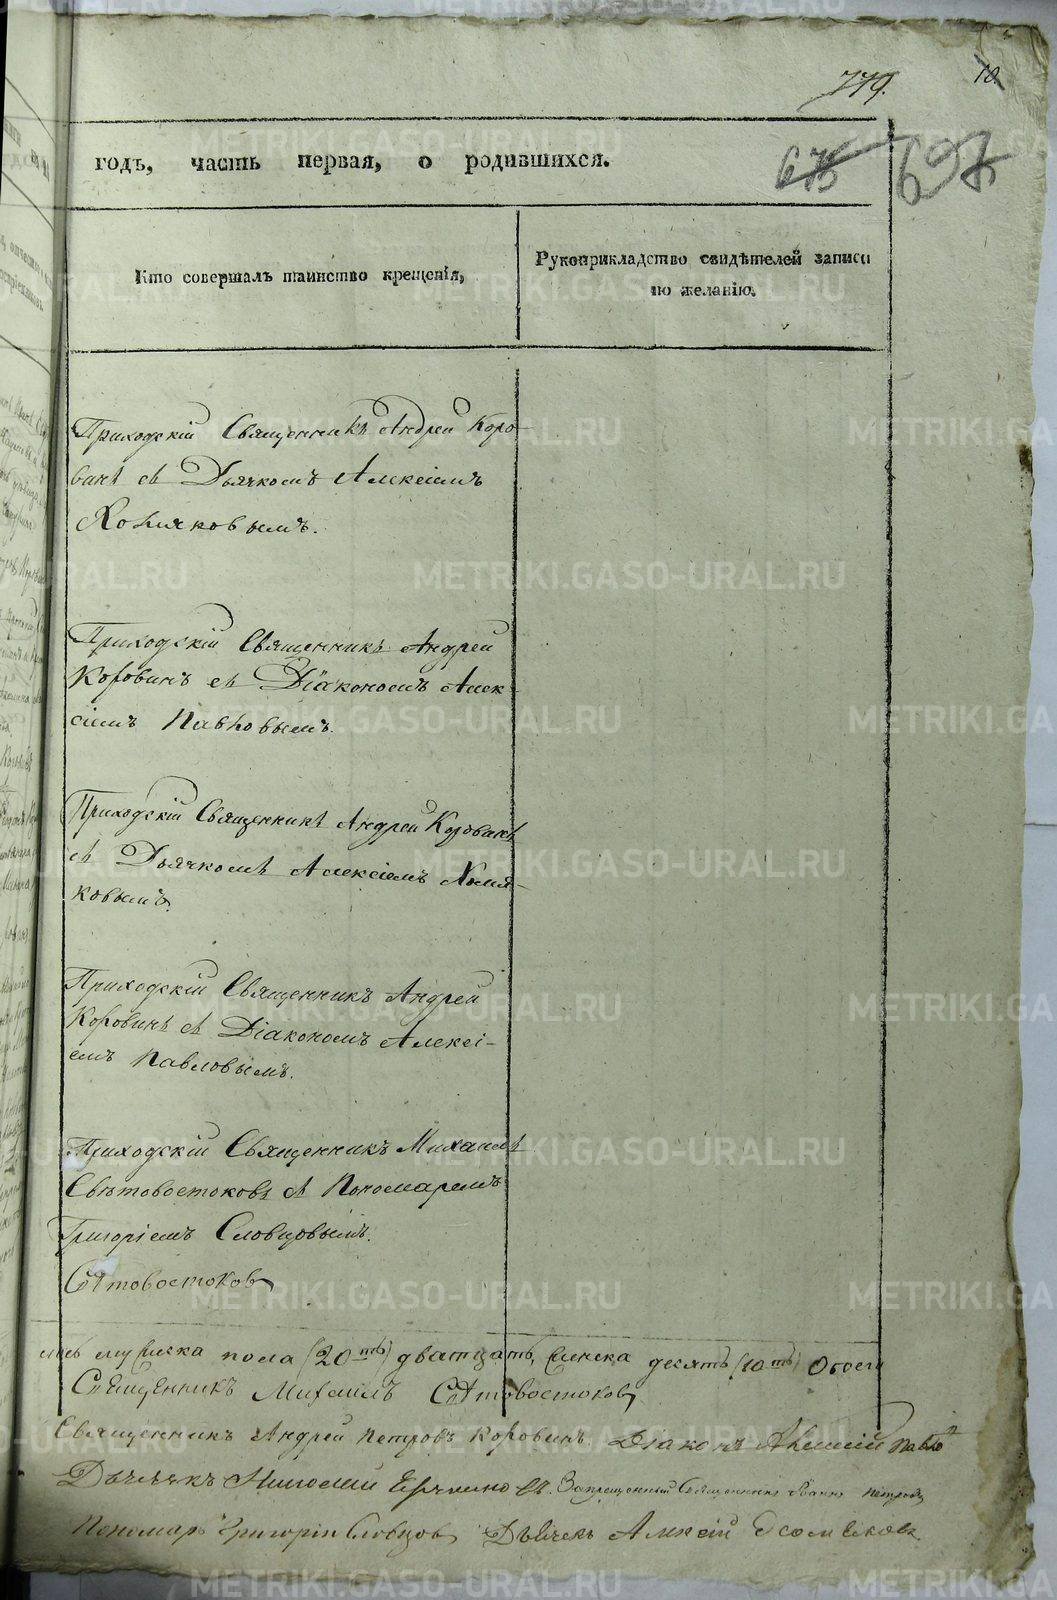 779.
10.
годъ, часть первая, о родившихся.
675 697
Кто совершалъ таинство крещенія,
Рукоприкладство свидѣтелей записи
по желанію.
Приходскій Священникъ Андрей Коро-
винъ съ Дьячкомъ Алексіемъ
Хомяковымъ.
Приходскій Священникъ Андрей
Коровинъ съ Діакономъ Алек-
сіемъ Павловымъ.
Приходскій Священникъ Андрей Коровинъ
съ Дьячкомъ Алексіемъ Хомя-
ковымъ.
Приходскій Священникъ Андрей
Коровинъ съ Діакономъ Алексі-
емъ Павловымъ.
Приходскій Священникъ Михаилъ
Свѣтовостоковъ съ Пономаремъ
Григоріемъ Словцовымъ.
Свѣтовостоковъ
мужеска пола (20ть) дватцать, женска десять (10ть) Обоего
Священникъ Михаилъ Свѣтовостоковъ
Священникъ Андрей Петровъ Коровинъ Діаконъ Алексій Павло
Дьячекъ Николай Запрещенный Священникъ Іоаннъ Петровъ
Пономарь Григорій Словцовъ Дьячекъ Алексій Хомяковъ
METRIKI.GASO-URAL.RU